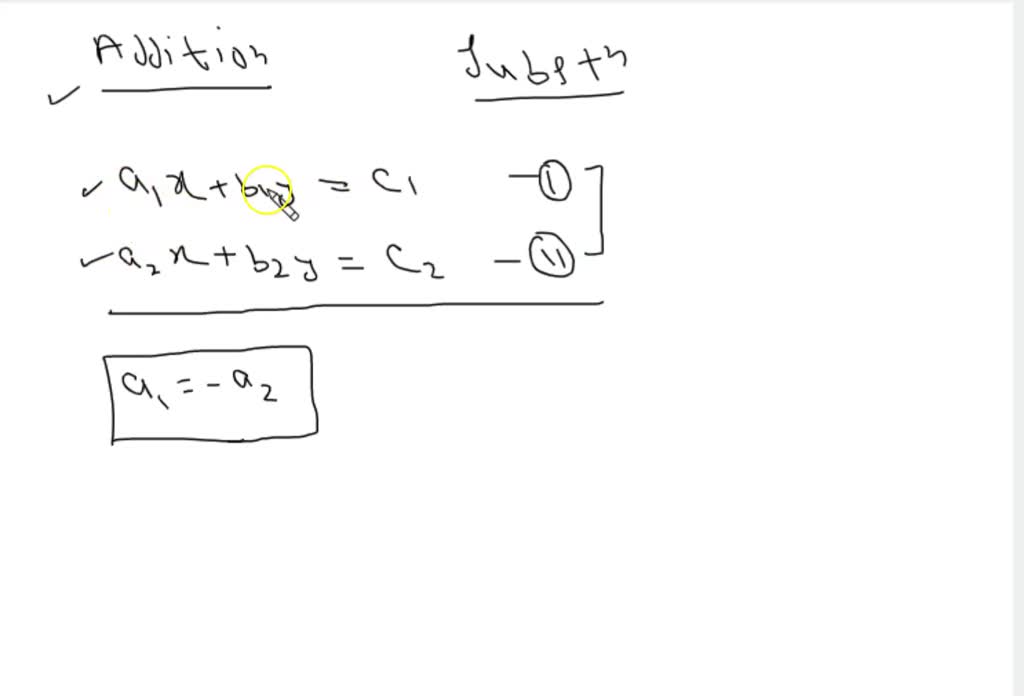 Addition
Substn
a₁x + b₁y = c₁ - ①
a₂x + b₂y = c₂ - ⑪
a₁ = - a₂